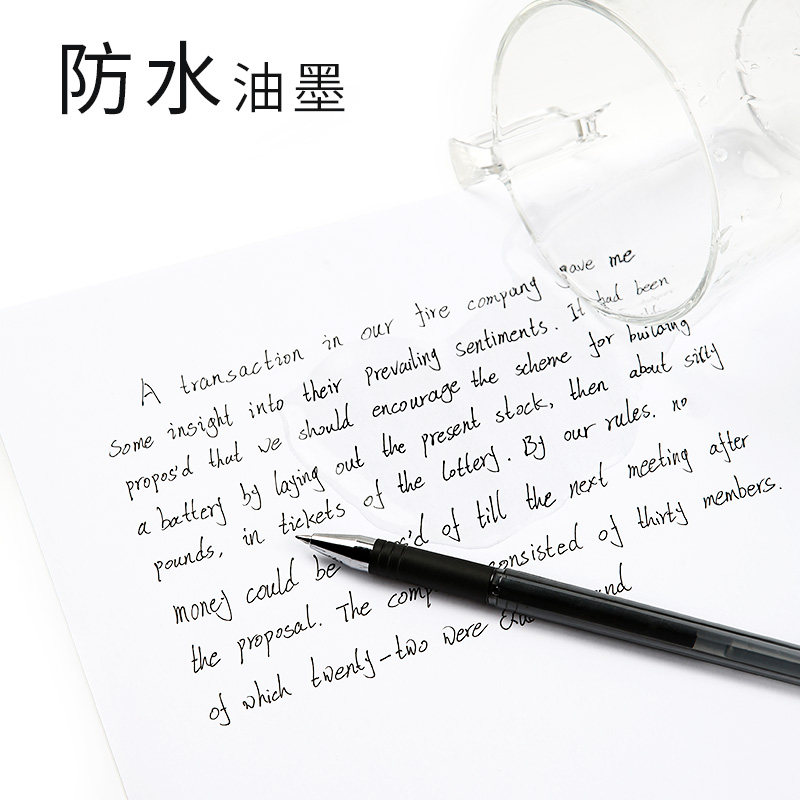 防水油墨
A transaction in our fire company gave me
some insight into their Prevailing sentiments. It had been
propos'd that we should encourage the scheme for building
a battery by laying out the present stock, then about sixty
pounds, in tickets of the lottery. By our rules. no
money could be of till the next meeting after
the proposal. The consisted of thirty members.
of which twenty-two were and